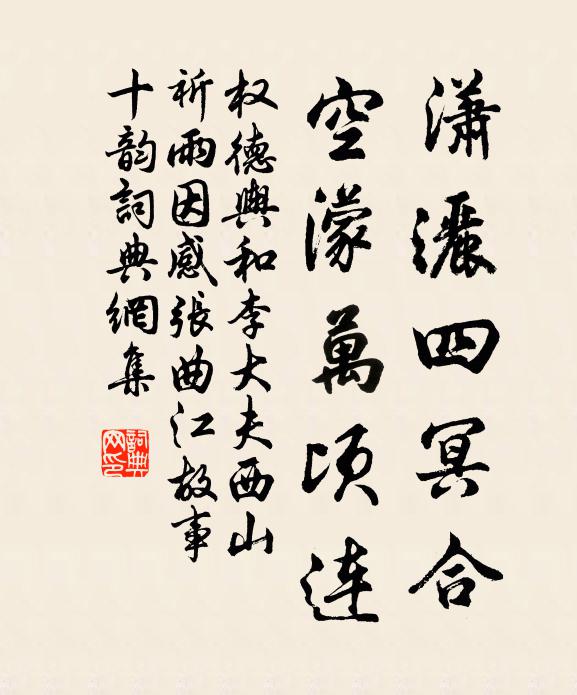 瀟灑四冥合
空濛萬頃連
权德輿和李大夫西山
祈雨因感張曲江故事
十韵詞典網集
詞典网印